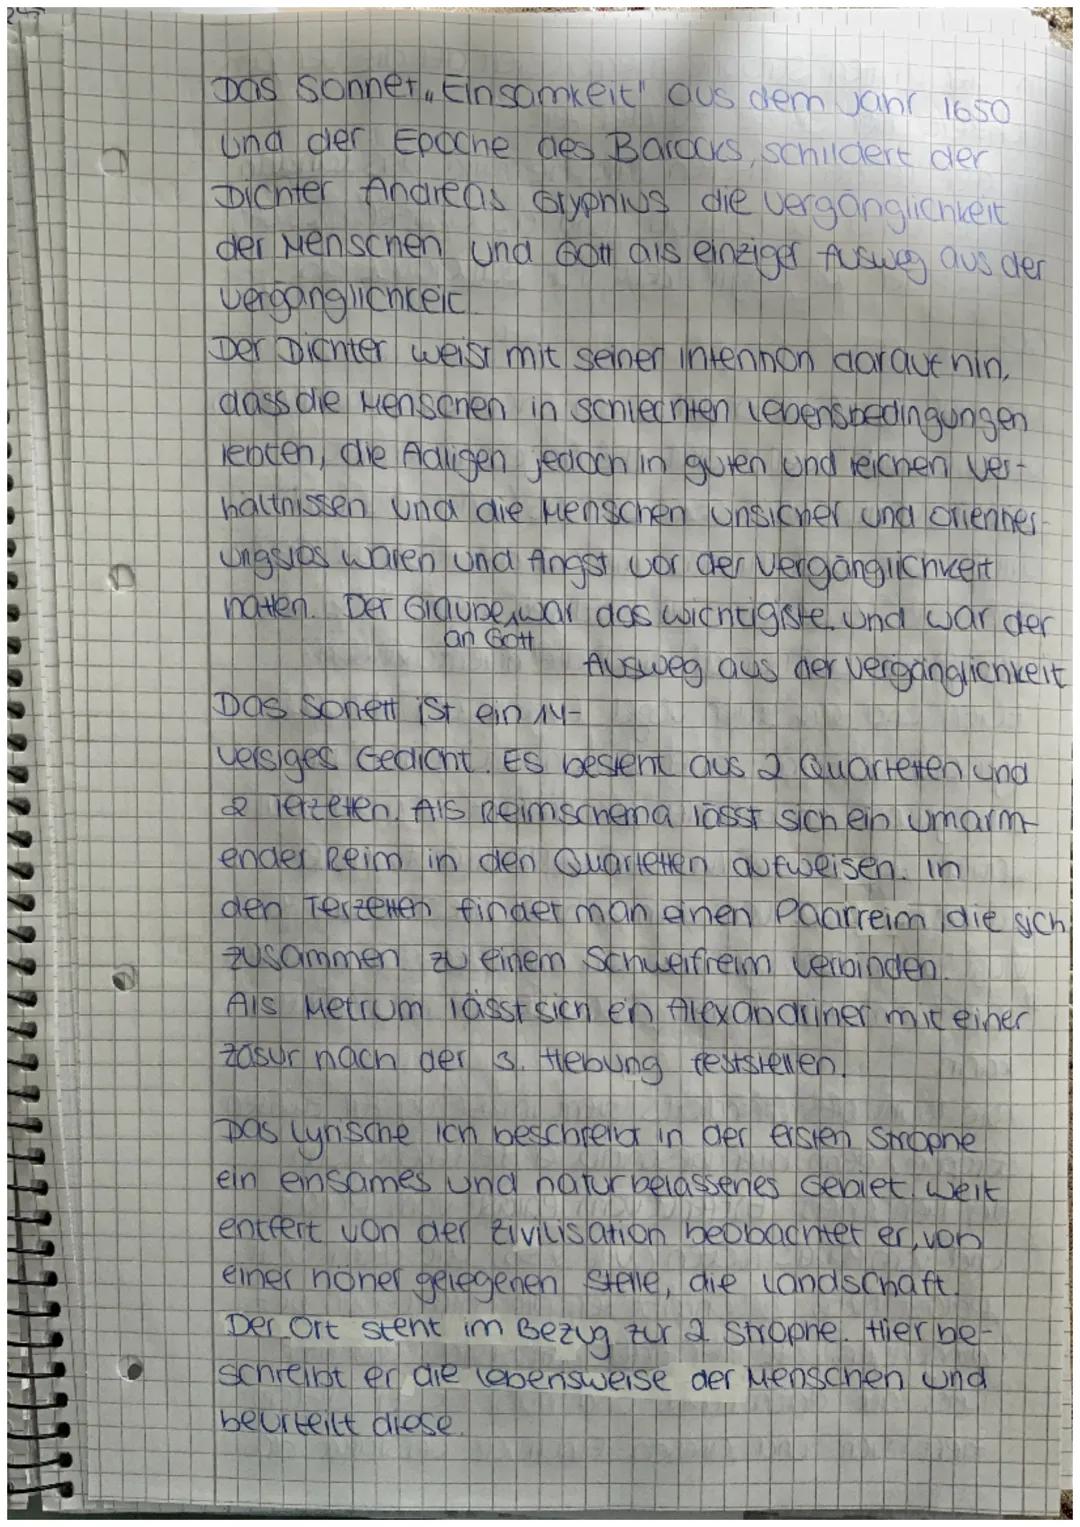 Das Sonnet „Einsamkeit" aus dem Jahr 1650
und der Epoche des Barocks, schildert der
Dichter Andreas Gryphius die Vergänglichkeit
der Menschen und Gott als einziger Ausweg aus der
Vergänglichkeit.
Der Dichter weist mit seiner Intention darauf hin,
dass die Menschen in schlechten Lebensbedingungen
lebten, die Adligen jedoch in guten und reichen Ver-
hältnissen und die Menschen unsicher und orientier-
ungslos waren und Angst vor der Vergänglichkeit
hatten. Der Glaube war das wichtigste und war der
an Gott
Ausweg aus der Vergänglichkeit
Das Sonett ist ein 14-
versiges Gedicht. Es besteht aus 2 Quarteten und
2 Terzeten. Als Reimschema lässt sich ein umarm-
ender Reim in den Quartetten aufweisen. In
den Terzetten findet man einen Paarreim, die sich
zusammen zu einem Schweifreim verbinden.
Als Metrum lässt sich en Alexandriner mit einer
Zäsur nach der 3. Hebung feststellen.
Das Lyrische Ich beschreibt in der ersten Strophe
ein einsames und naturbelassenes Gebiet. Weit
entfert von der Zivilisation beobachtet er, von
einer höher gelegenen Stelle, die Landschaft.
Der Ort steht im Bezug zur 2. Strophe. Hier be-
schreibt er die Lebensweise der Menschen und
beurteilt diese.